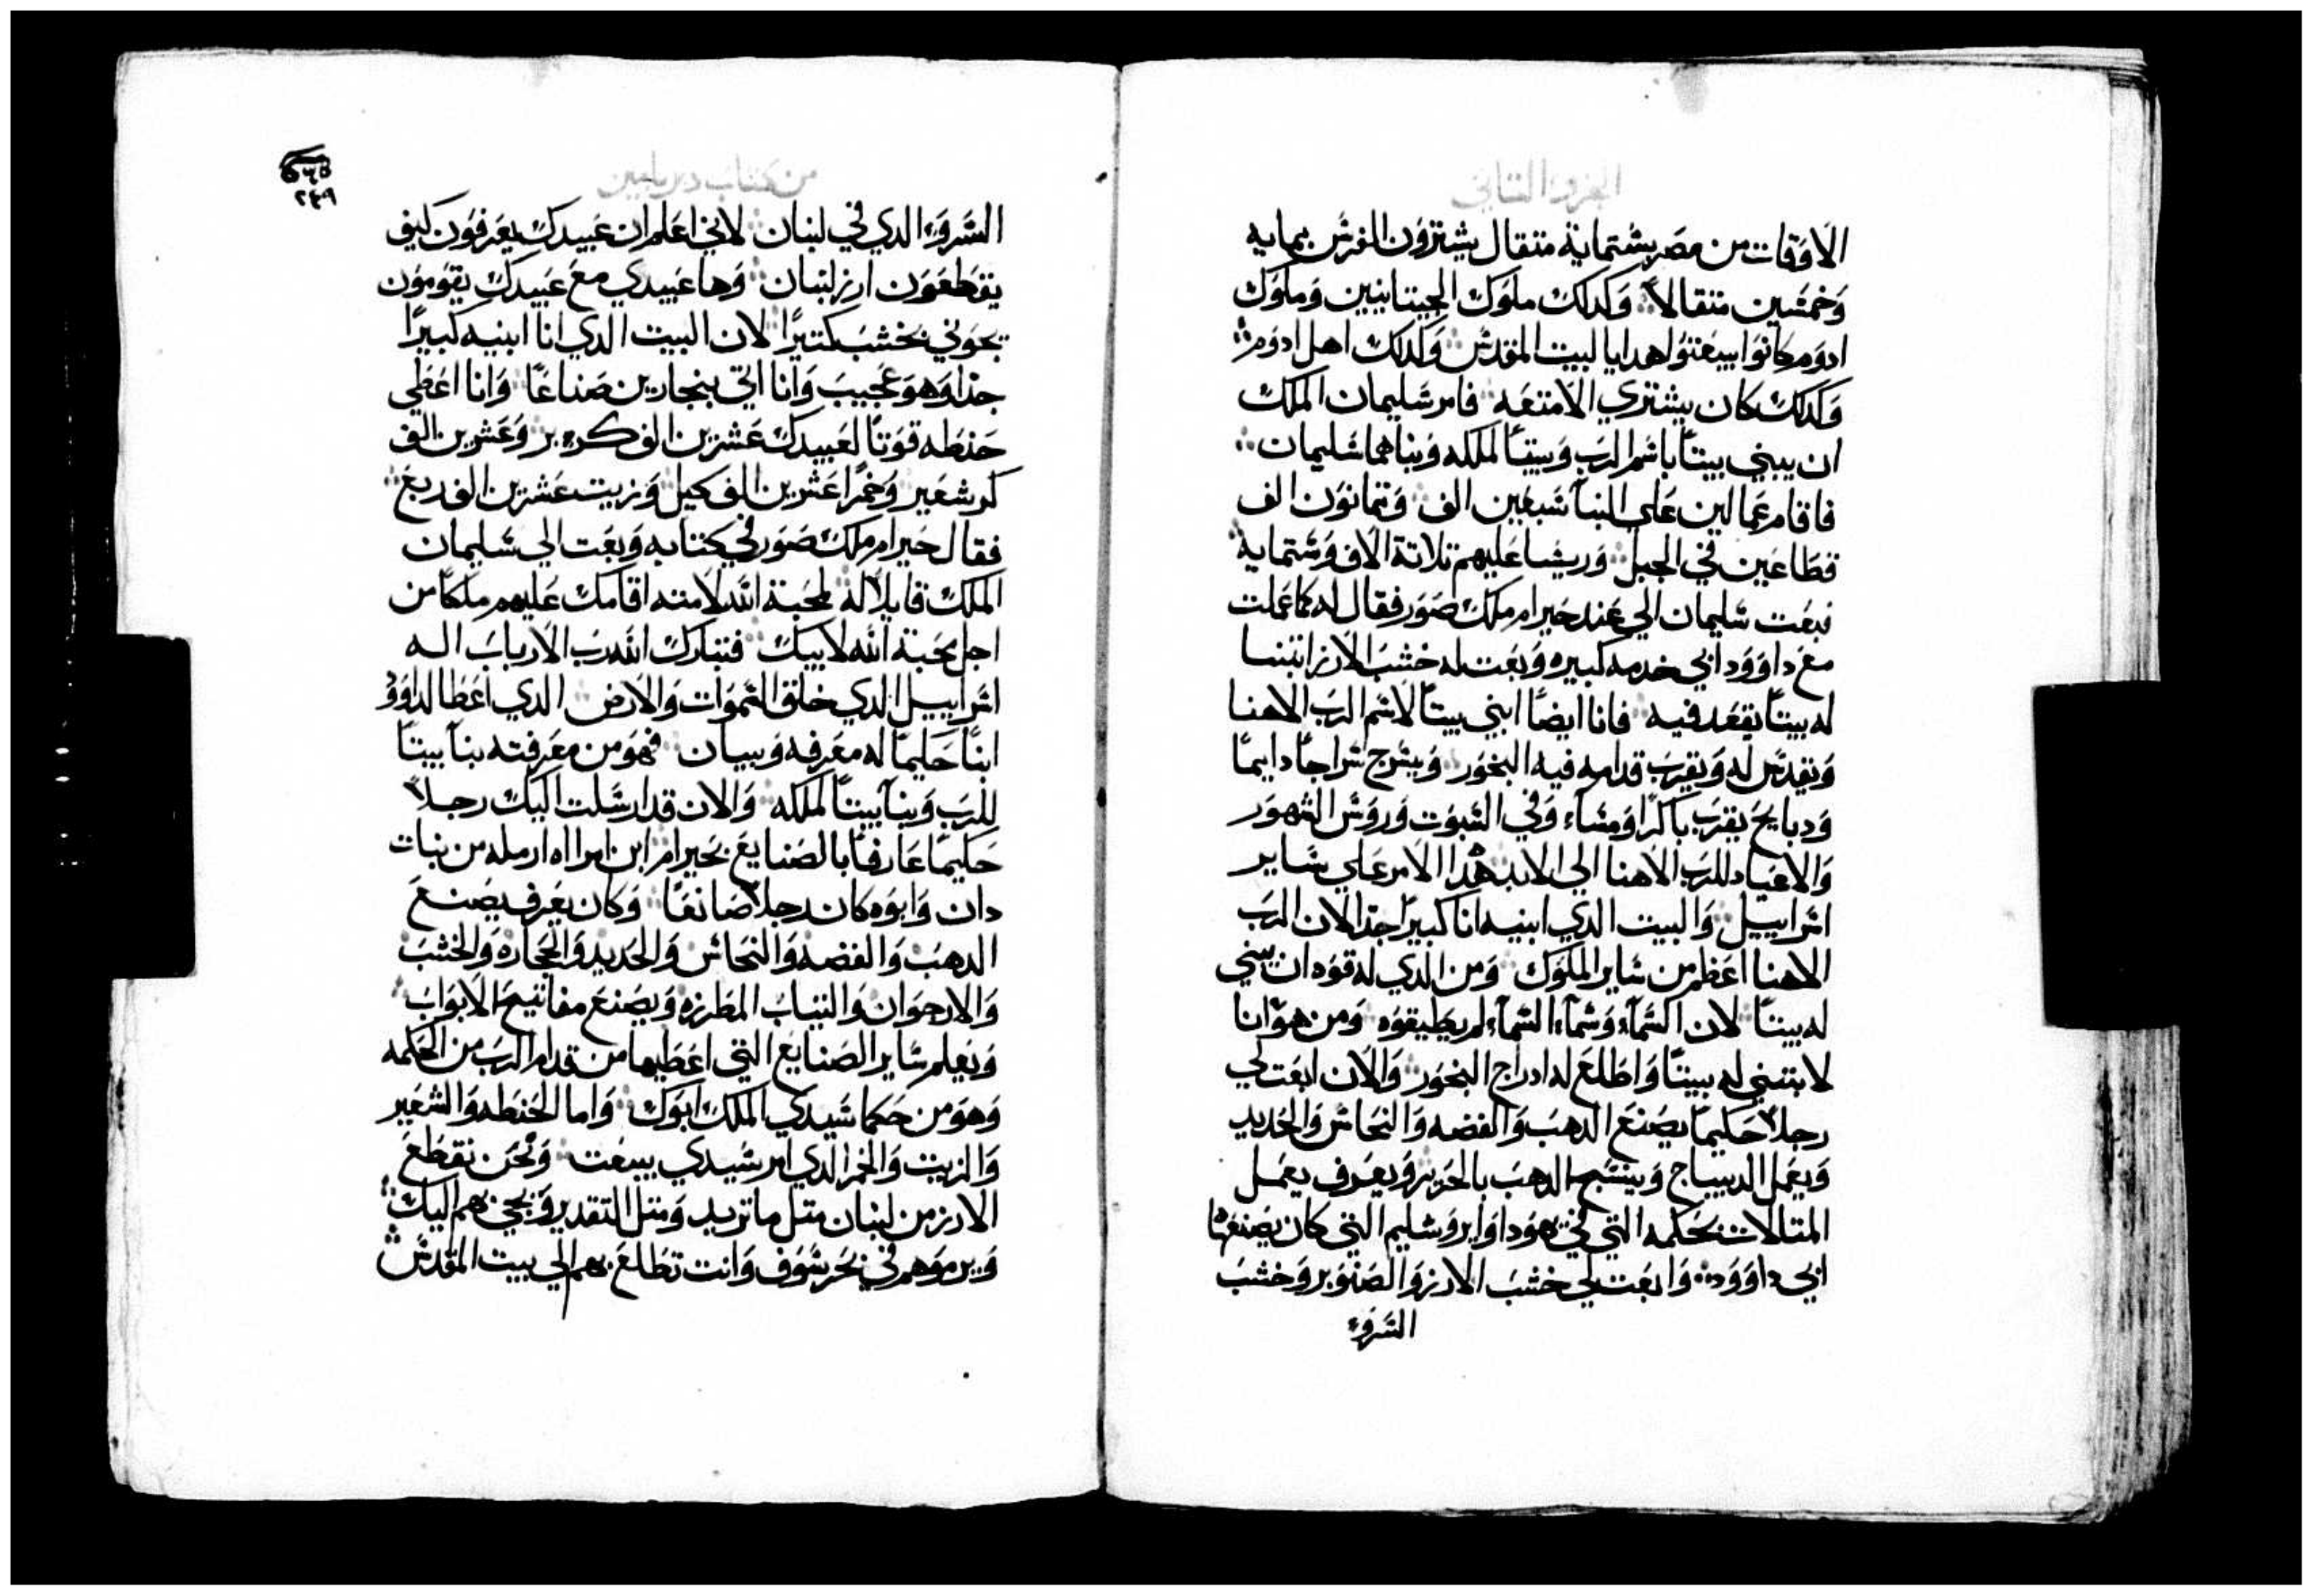 الجزو التاني
الاوقات من مصر بستماية متقال يشترون الفرس بمايه
وخمسين متقالاً وكدلك ملوك الجيتانيين وملوك
ادوم كانوا يبعتوا هدايا لبيت المقدس وكدلك اهل ادوم
وكدلك كان يشتري الامتعه فامر سليمان الملك
ان يبني بيتاً باسم الرب وبيتاً لملكه وبناهما سليمان
فاقام عمالين علي البنآ سبعين الف وتمانون الف
قطاعين في الجبل وريسا عليهم تلاتة الاف وستماية
فبعت سليمان الي عند حيرام ملك صور فقال له كما عملت
مع داوود ابي خدمه كبيره وبعت له خشب الارز ابتنا
له بيتاً يقعد فيه فانا ايضاً ابني بيتاً لاسم الرب الاهنا
ونقدس له ويقرب قدامه فيه البخور ويسرج سراجاً دايماً
ودبايح يقرب باكراً ومساء وفي السبوت وروس الشهور
والاعياد للرب الاهنا الي الابد هدا الامر علي ساير
اسراييل والبيت الدي ابنيه انا كبيراً جدا لان الرب
الاهنا اعظم من ساير الملوك ومن الدي له قوه ان يبني
له بيتاً لان السمآء وسمآء السمآء لم يطيقوه ومن هو انا
لابتني له بيتاً واطلع له ادراج البخور والان ابعت لي
رجلاً حكيماً يصنع الدهب والفضه والنحاس والحديد
ويعمل الديباج وينسج الدهب بالحرير ويعرف يعمل
المتالات بحكمه التي في يهودا وايروشليم التي كان يصنعها
ابي داوود وابعت لي خشب الارز والصنوبر وخشب
السرو
من كتاب دبريامين
٢٤٩
السرو الدي في لبنان لاني اعلم ان عبيدك يعرفون كيف
يقطعون ارز لبنان وها عبيدي مع عبيدك يقومون
يجوني بخشب كتيراً لان البيت الدي انا ابنيه كبيراً
جدا وهو عجيب وانا اتي بنجارين صناعاً وانا اعطي
حنطه قوتاً لعبيدك عشرين الف كر بر وعشرين الف
كر شعير وخمراً عشرين الف كيل وزيت عشرين الف ربع
فقال حيرام ملك صور في كتابه وبعت الي سليمان
الملك قايلاً له لمحبة الله لامته اقامك عليهم ملكاً من
اجل محبة الله لابيك فتبارك الله رب الارباب اله
اسراييل الدي خلق السموات والارض الدي اعطا لداوود
ابناً حكيماً له معرفه وبيان فهو من معرفته بنآ بيتاً
للرب وبنآ بيتاً لملكه والان قد ارسلت اليك رجلاً
حكيماً عارفاً بالصنايع بحيرام ابن امراه ارمله من بنات
دان وابوه كان رجلاً صانعاً وكان يعرف يصنع
الدهب والفضه والنحاس والحديد والحجاره والخشب
والارجوان والتياب المطرزه ويصنع مفاتيح الابواب
ويعلم ساير الصنايع التي اعطيها من قدام الرب من الحكمه
وهو من حكما سيدي الملك ابوك واما الحنطه والشعير
والزيت والخمر الدي امر سيدي يبعت ونحن نقطع
الارز من لبنان متل ما تريد ومتل التقدير ويجي بهم اليك
ويرموهم في بحر سوف وانت تطلع بهم الي بيت المقدس